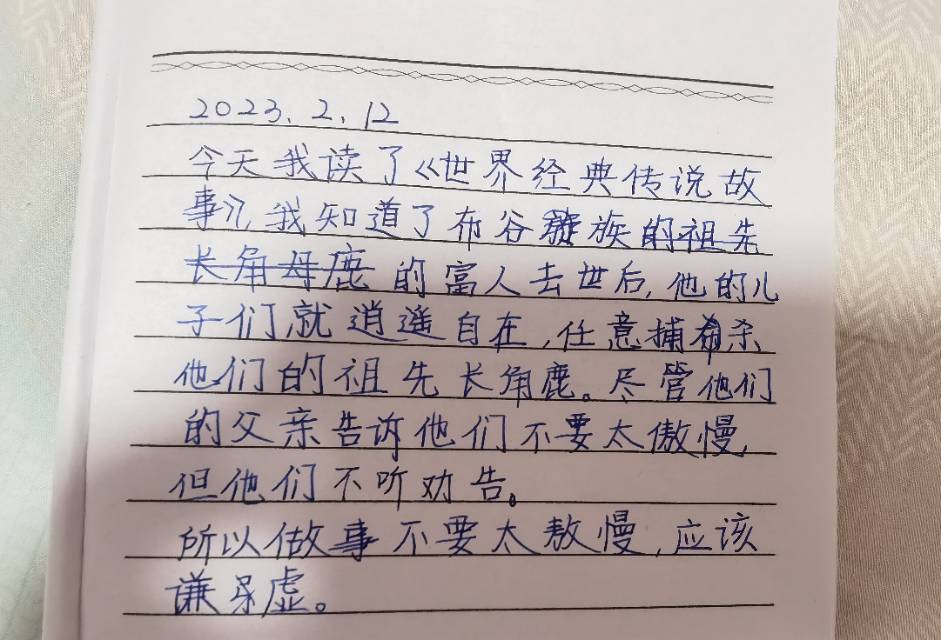 2023.2.12
今天我读了《世界经典传说故
事》,我知道了布谷族的祖先
长角母鹿的富人去世后,他的儿
子们,就逍遥自在,任意捕杀
他们的祖先长角鹿。尽管他们
的父亲告诉他们不要太傲慢,
但他们不听劝告。
所以做事不要太敖慢,应该
谦虚。